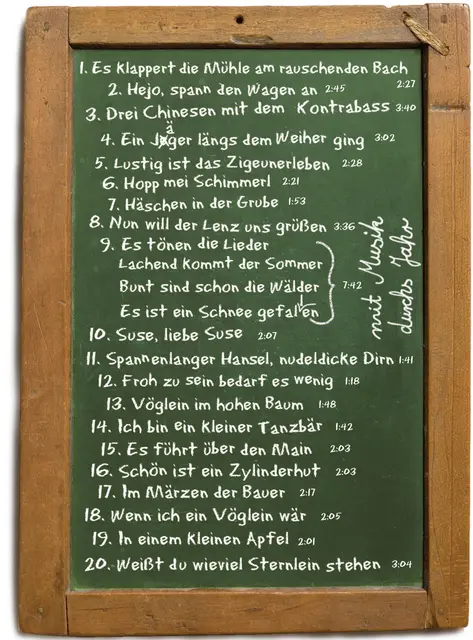 1. Es klappert die Mühle am rauschenden Bach 2:27
2. Hejo, spann den Wagen an 2:45
3. Drei Chinesen mit dem Kontrabass 3:40
4. Ein Jäger längs dem Weiher ging 3:02
5. Lustig ist das Zigeunerleben 2:28
6. Hopp mei Schimmerl 2:21
7. Häschen in der Grube 1:53
8. Nun will der Lenz uns grüßen 3:36
9. Es tönen die Lieder
Lachend kommt der Sommer
Bunt sind schon die Wälder 7:42
Es ist ein Schnee gefallen
10. Suse, liebe Suse 2:07
11. Spannenlanger Hansel, nudeldicke Dirn 1:41
12. Froh zu sein bedarf es wenig 1:18
13. Vöglein im hohen Baum 1:48
14. Ich bin ein kleiner Tanzbär 1:42
15. Es führt über den Main 2:03
16. Schön ist ein Zylinderhut 2:03
17. Im Märzen der Bauer 2:17
18. Wenn ich ein Vöglein wär 2:05
19. In einem kleinen Apfel 2:01
20. Weißt du wieviel Sternlein stehen 3:04
mit Musik
durchs Jahr